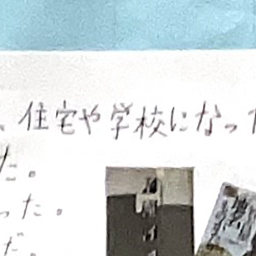 、住宅や学校になった
た。
った。
だ。